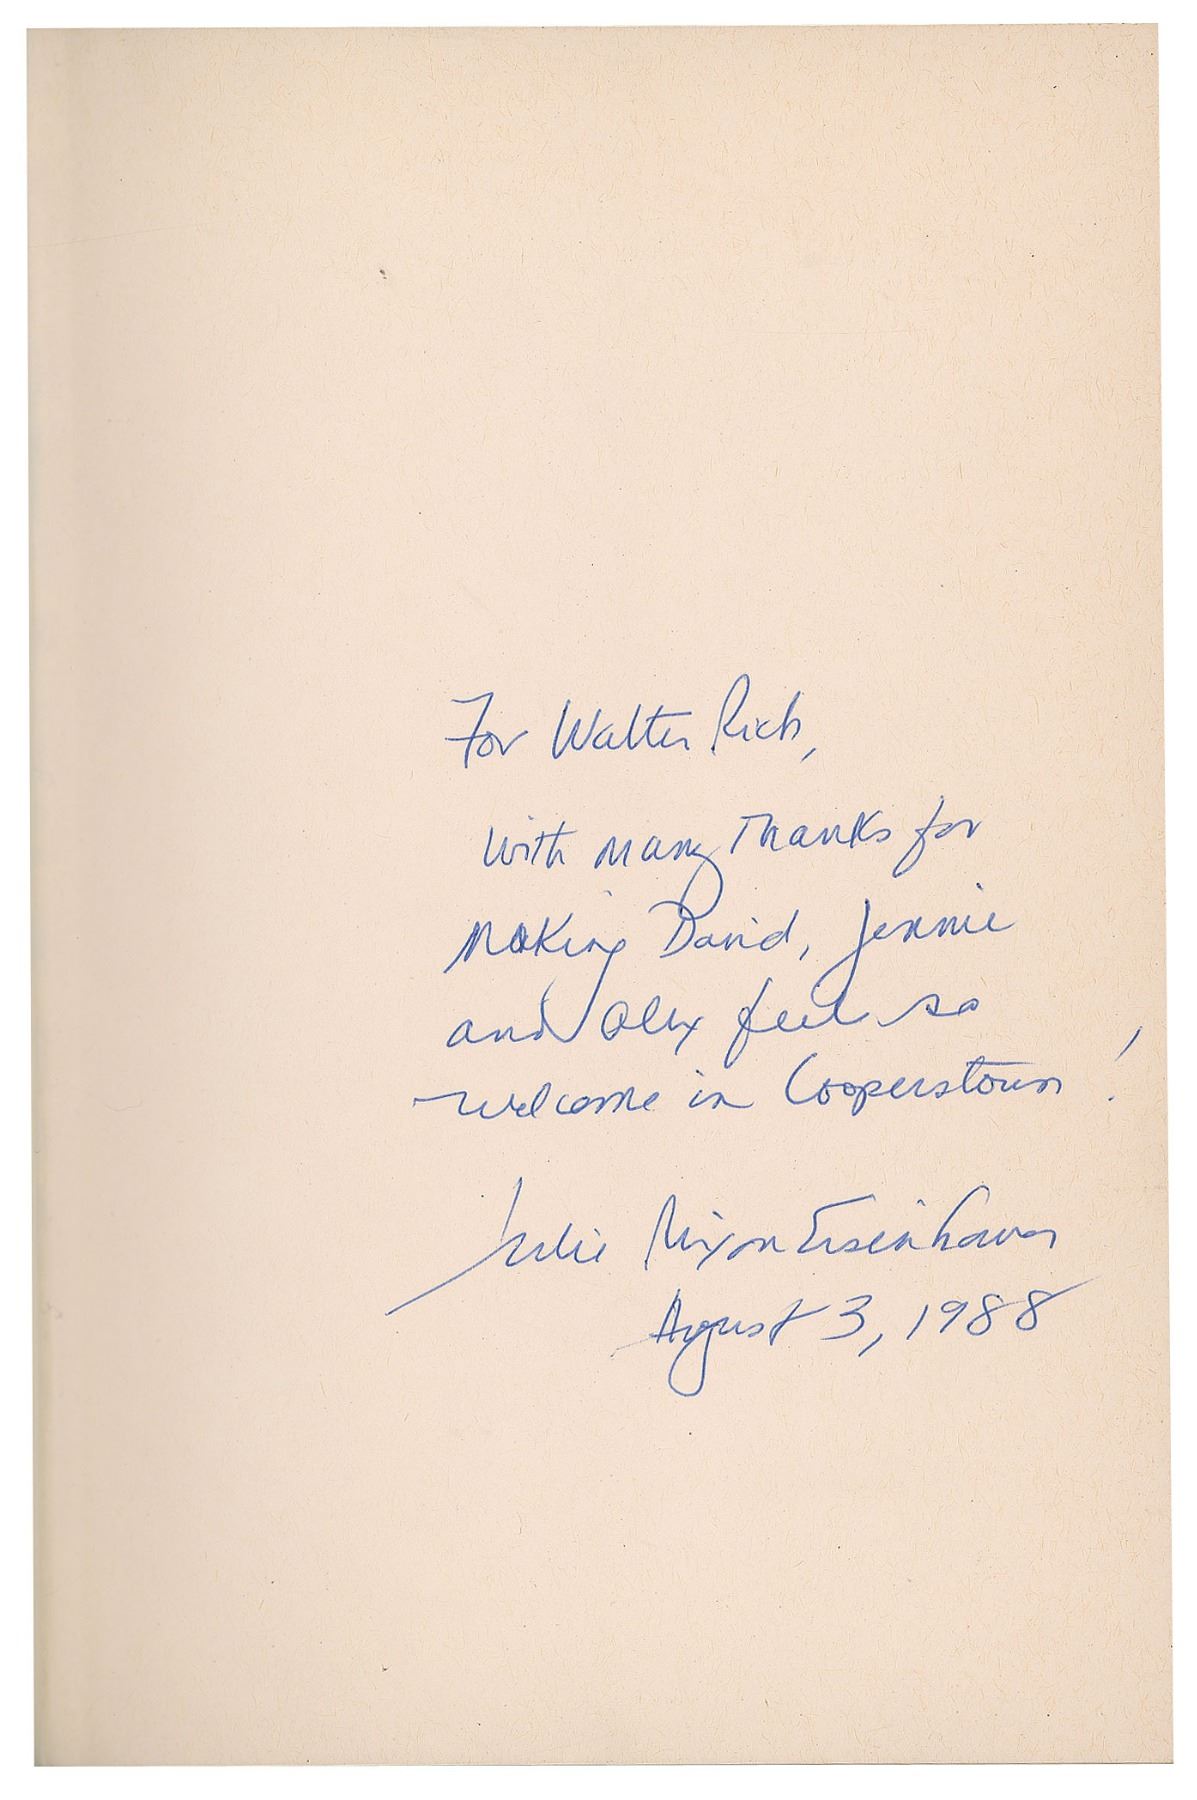 For Walter Rich,
With many Thanks for
Making David, Jennie
and Alex feel so
welcome in Cooperstown!
Julie Nixon Eisenhower
August 3, 1988